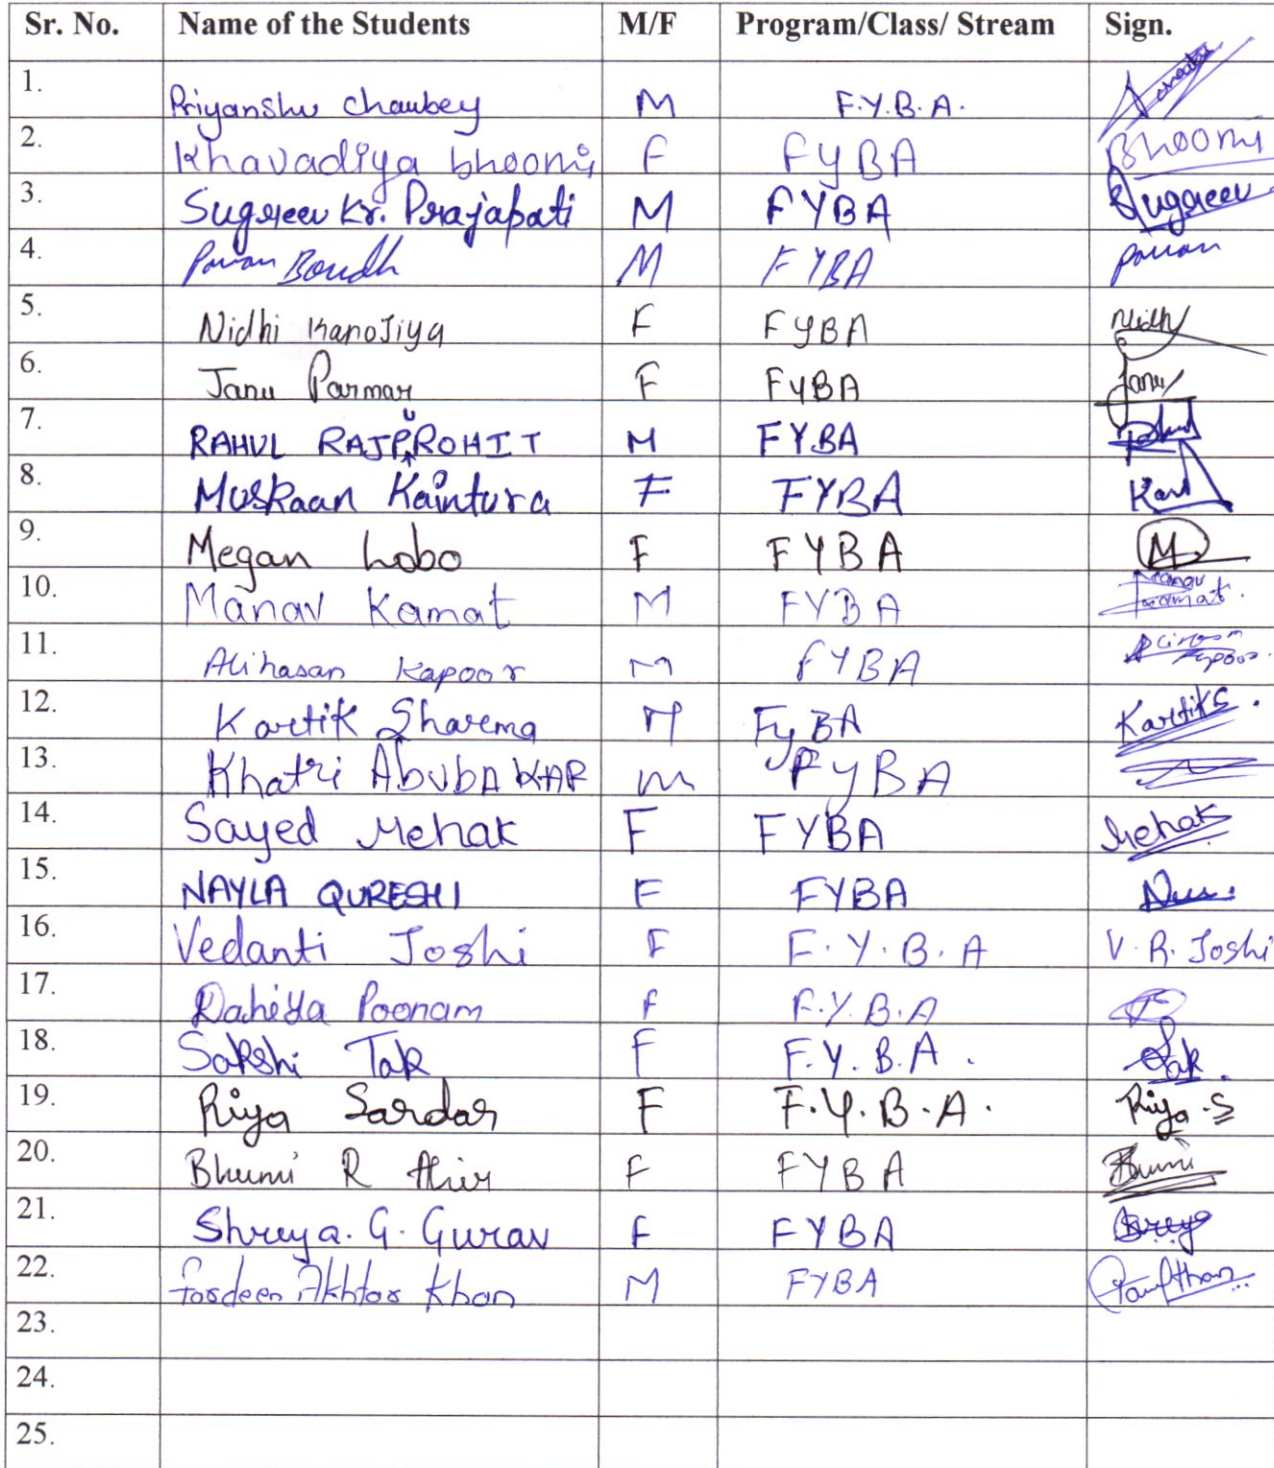 Sr. No. Name of the Students M/F Program/Class/ Stream Sign.
1. Priyanshu Chaubey M F.Y.B.A.
2. Khavadiya bhoomi F FYBA Bhoomi
3. Sugreev Kr. Prajapati M FYBA Sugreev
4. Pawan Boudh M FYBA Pawan
5. Nidhi Kanojiya F FYBA Nidhi
6. Janu Parmar F FYBA Janu
7. RAHUL RAJPUROHIT M FYBA
8. Muskaan Kaintura F FYBA
9. Megan Lobo F FYBA M.
10. Manav Kamat M FYBA Manav Kamat.
11. Alihasan Kapoor M FYBA
12. Kartik Sharma M FyBA Kartik S.
13. Khatri AbubAKAR m FyBA
14. Sayed Mehak F FYBA Mehak
15. NAYLA QURESHI F FYBA
16. Vedanti Joshi F F.Y.B.A V.R. Joshi
17. Dahiya Poonam F F.Y.B.A
18. Sakshi Tak F F.Y.B.A. Tak.
19. Riya Sardar F F.Y.B.A. Riya.S
20. Bhumi R Ahir F FYBA Bhumi
21. Shreya. G. Gurav F FYBA Shreya
22. Fardeen Akhtar Khan M FYBA
23.
24.
25.